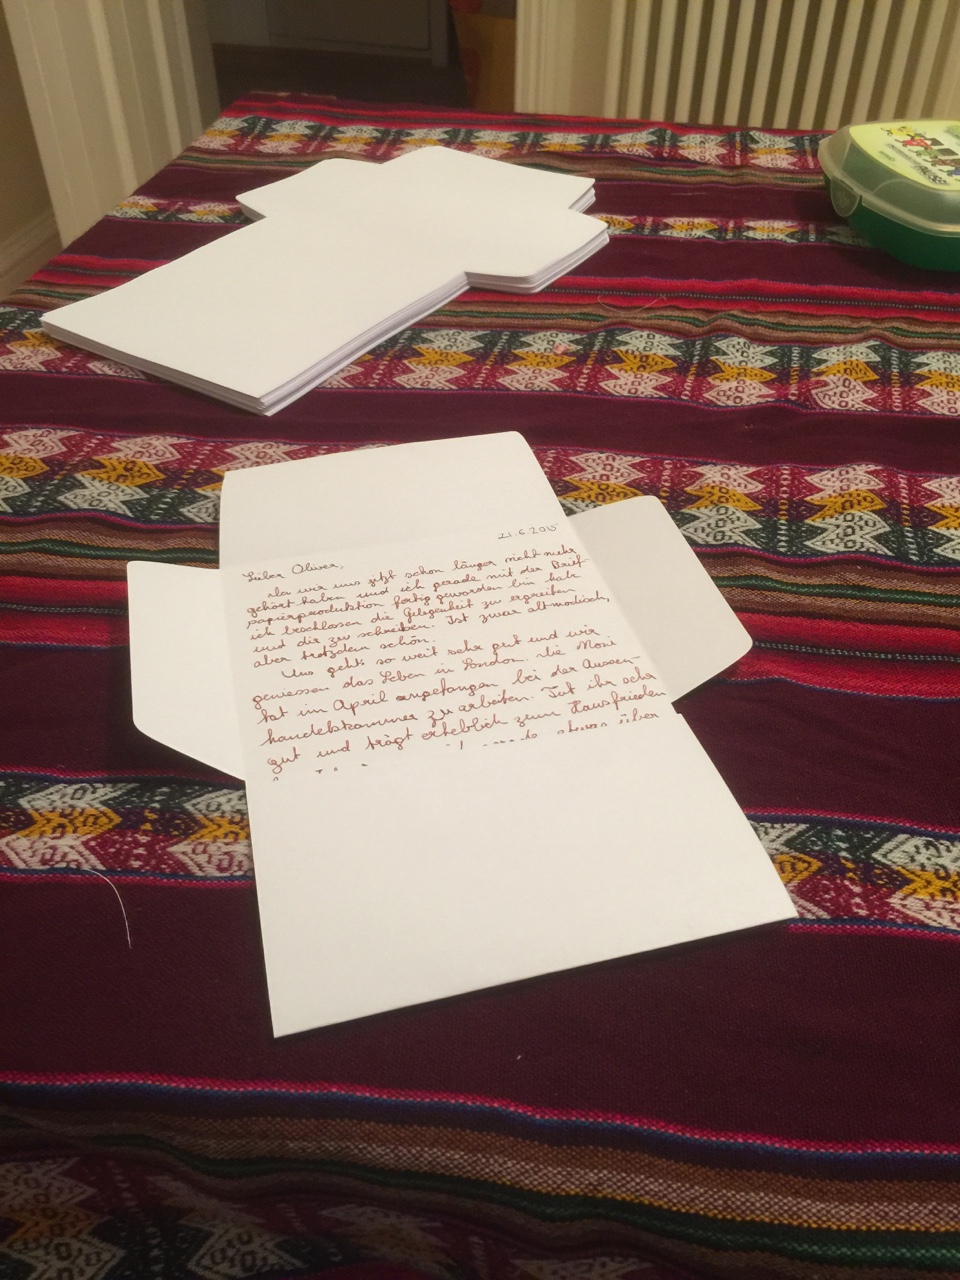 21.6.2015
Lieber Oliver,
da wir uns jetzt schon länger nicht mehr
gehört haben und ich gerade mit der Brief
papierproduktion fertig geworden bin habe
ich beschlossen die Gelegenheit zu ergreifen
und dir zu schreiben. Ist zwar altmodisch,
aber trotzdem schön.
Uns gehts so weit sehr gut und wir
geniessen das Leben in London. Die Mosi
hat im April angefangen bei der Aussen-
handelskammer zu arbeiten. Tut ihr sehr
gut und trägt erheblich zum Hausfrieden
über